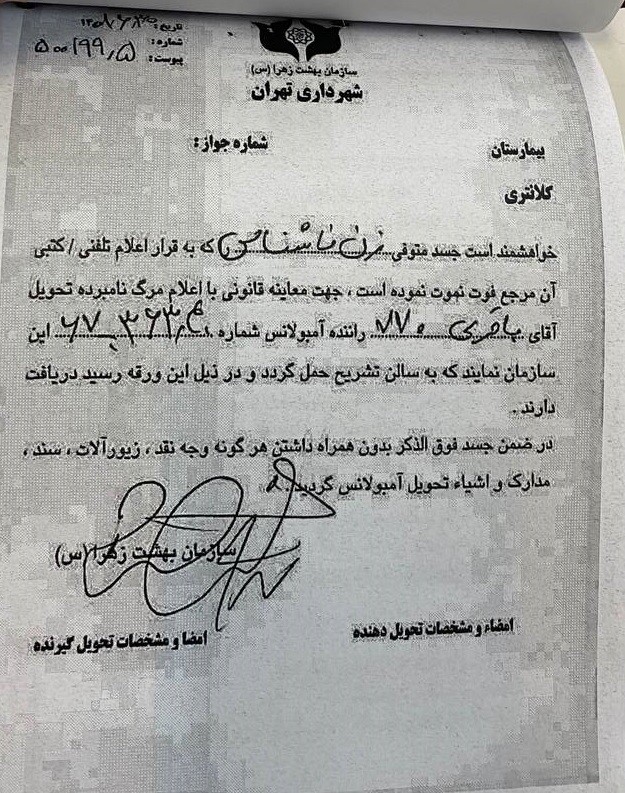 تاریخ:
شماره: ۵۰۰/۹۹٫۵
پیوست:
سازمان بهشت زهرا (س)
شهرداری تهران
بیمارستان
شماره جواز:
کلانتری
خواهشمند است جسد متوفی زن ناشناس را که به قرار اعلام تلفنی / کتبی
آن مرجع فوت نموت نموده است ، جهت معاینه قانونی با اعلام مرگ نامبرده تحویل
آقای باقری ۸۷۰ راننده آمبولانس شماره این
سازمان نمایند که به سالن تشریح حمل گردد و در ذیل این ورقه رسید دریافت
دارند .
در ضمن جسد فوق الذکر بدون همراه داشتن هر گونه وجه نقد ، زیورآلات ، سند ،
مدارک و اشیاء تحویل آمبولانس گردید .
سازمان بهشت زهرا (س)
امضاء و مشخصات تحویل دهنده
امضا و مشخصات تحویل گیرنده